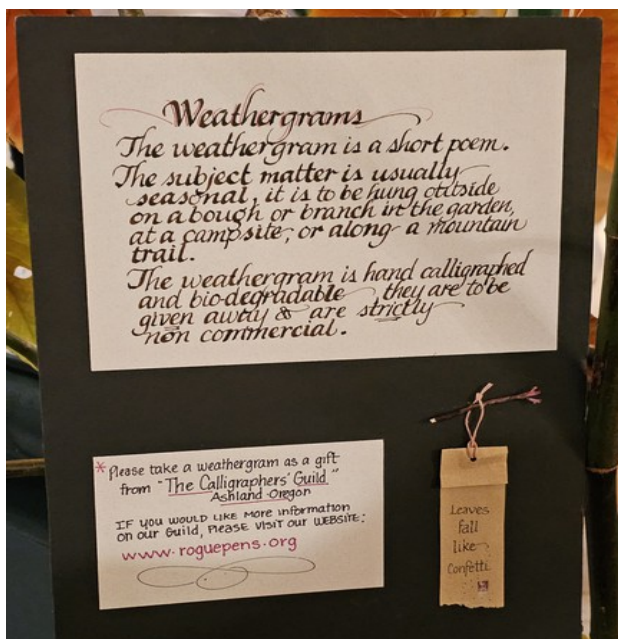 Weathergrams
The weathergram is a short poem.
The subject matter is usually
seasonal, it is to be hung outside
on a bough or branch in the garden,
at a campsite, or along a mountain
trail.
The weathergram is hand calligraphed
and bio-degradable, they are to be
given away & are strictly
non commercial.
* Please take a weathergram as a gift
from "The Calligraphers' Guild"
Ashland·Oregon
IF YOU WOULD LIKE MORE INFORMATION
ON OUR GUILD, PLEASE VISIT OUR WEBSITE:
www.roguepens.org
Leaves
fall
like
Confetti